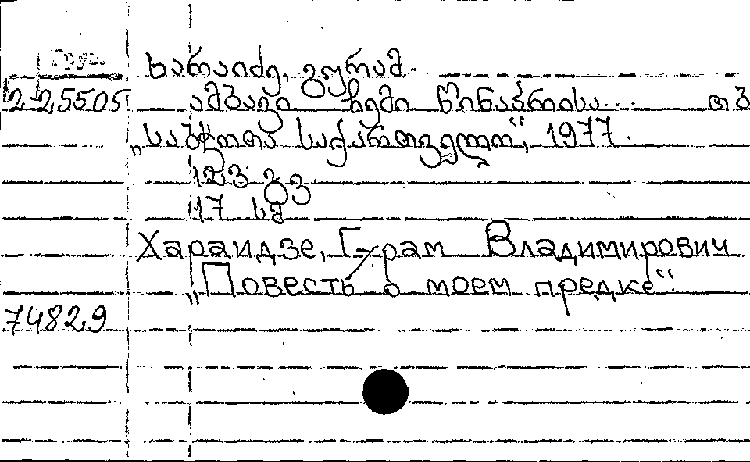 Груз.
ხარაიძე, გურამ.
2.25505 ამბავი ჩემი წინაპრისა... თბ
„საბჭოთა საქართველო", 1977.
123 გვ
17 სმ
Хараидзе, Гурам Владимирович
„Повесть о моем предке"
74829